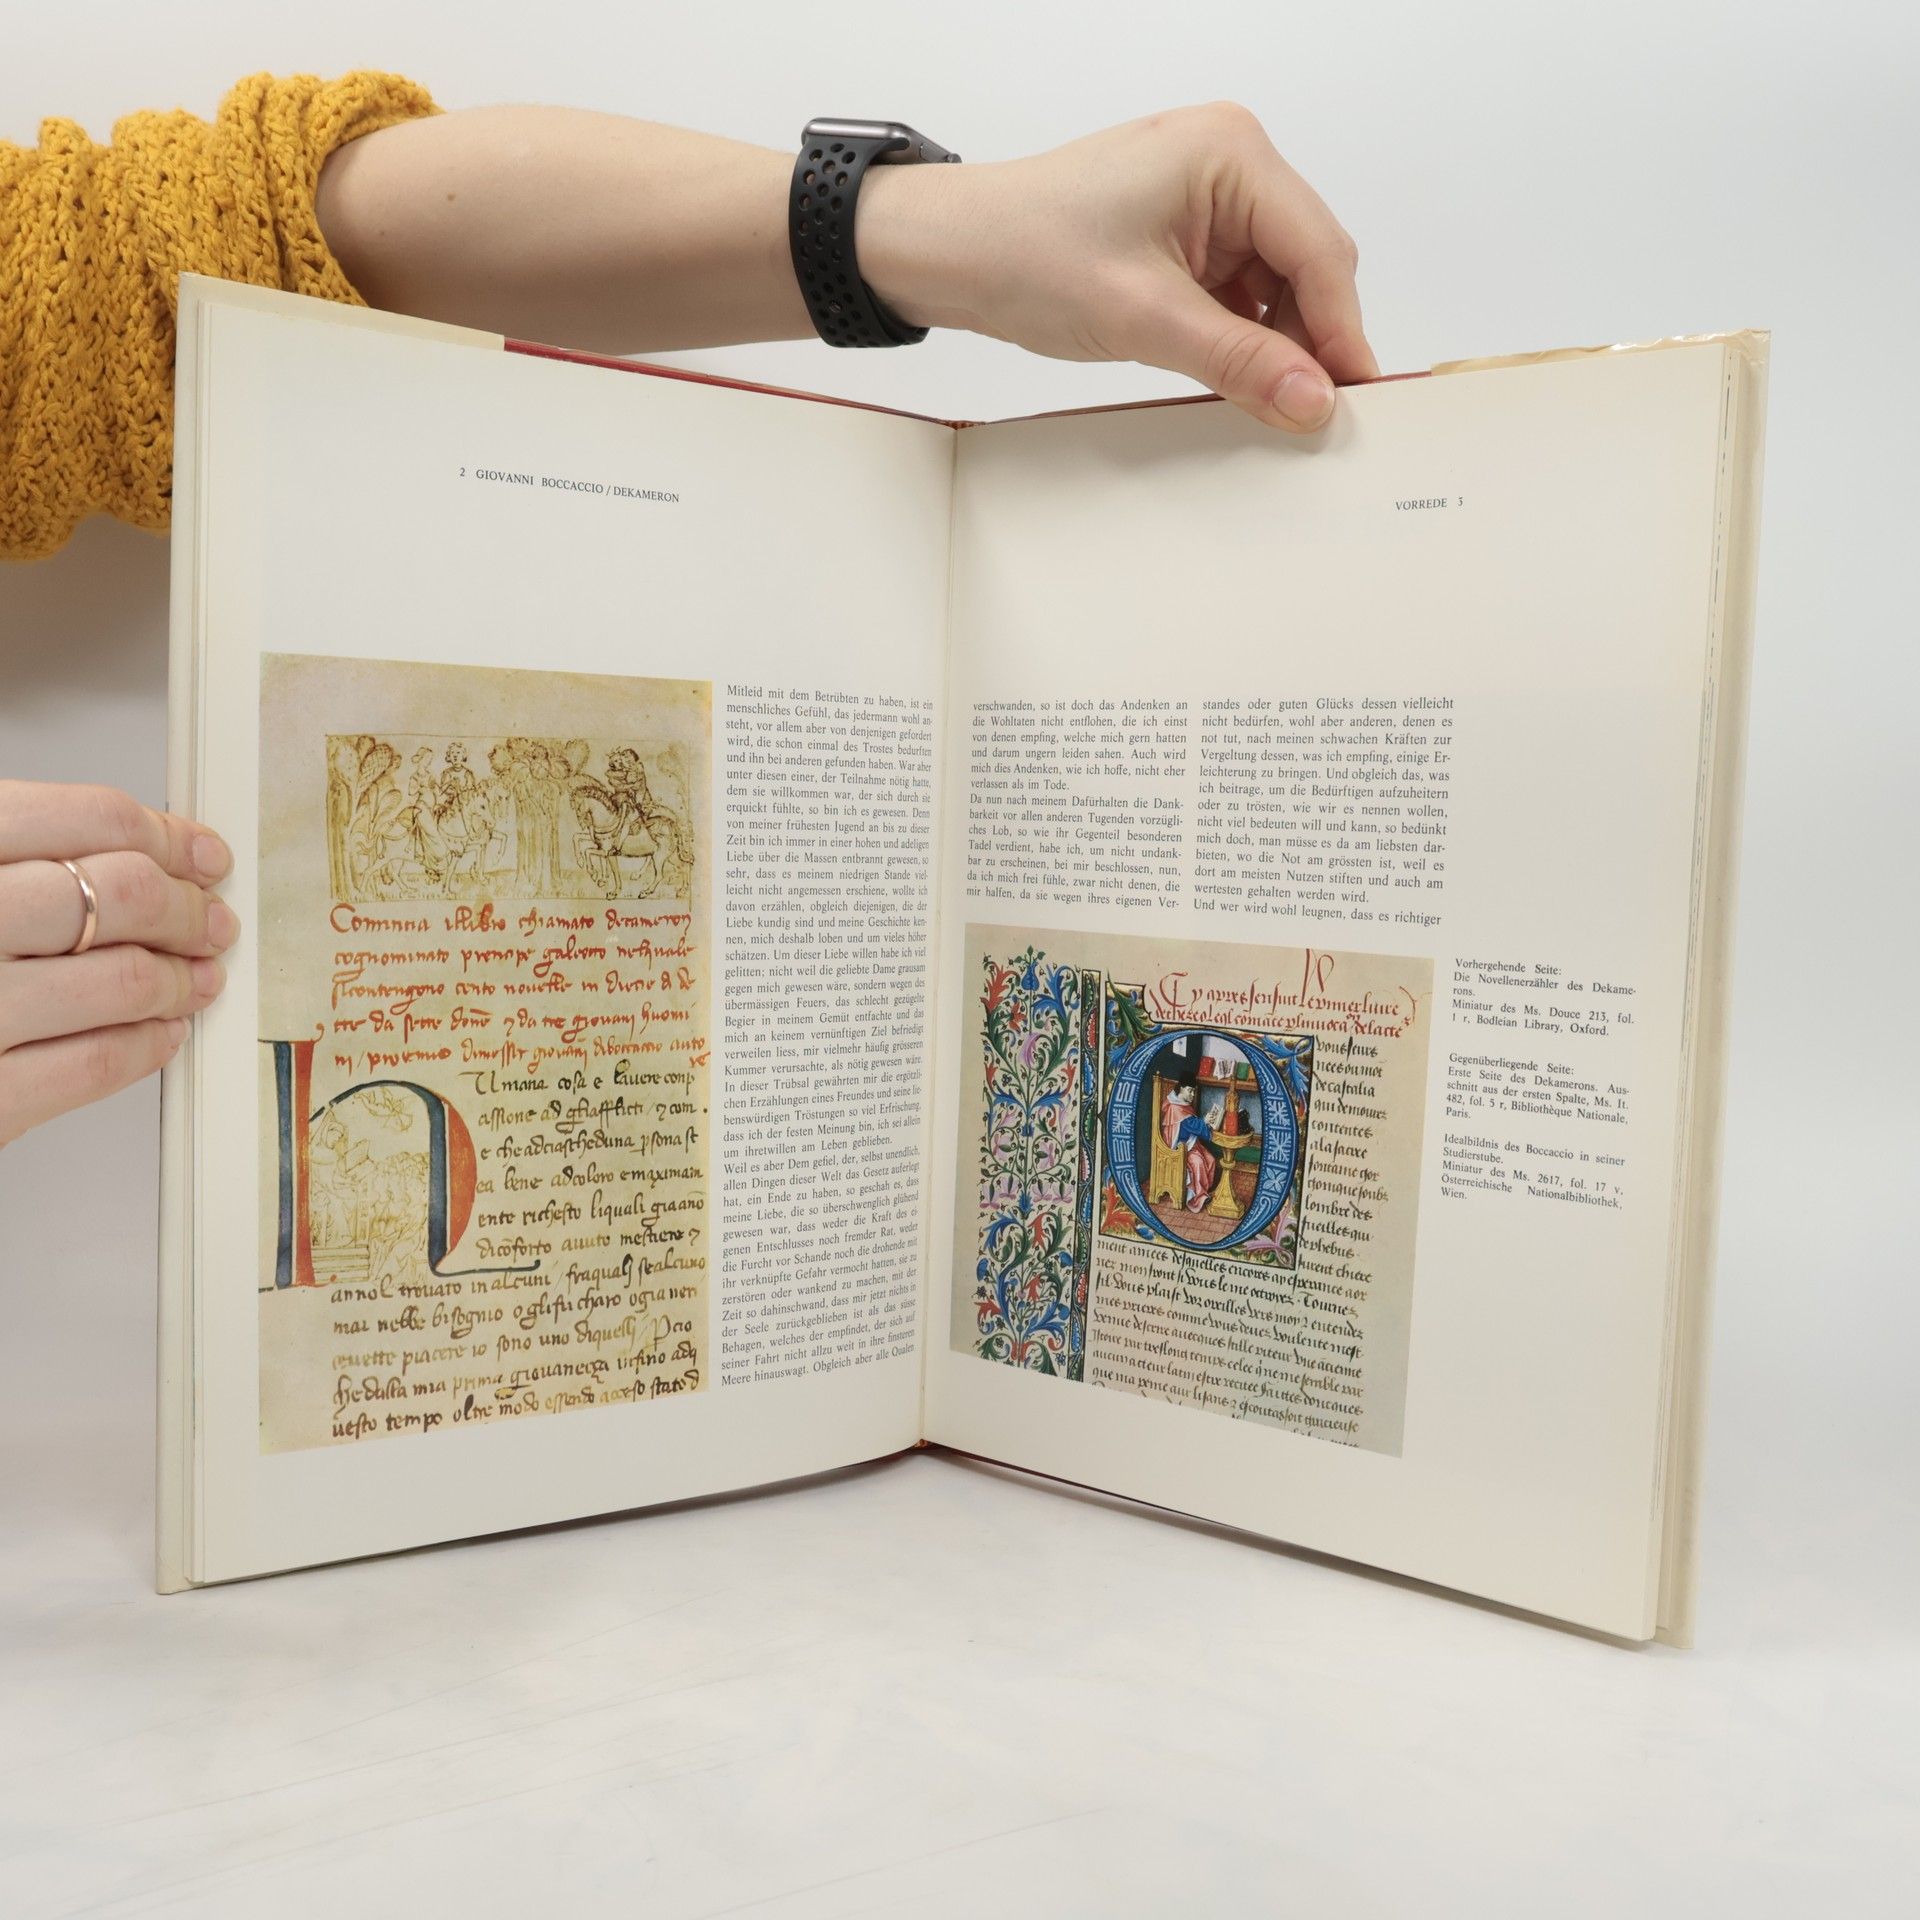 2 GIOVANNI BOCCACCIO / DEKAMERON
Comincia illibro chiamato decameron
cognominato prencipe galeotto nelquale
sicontengono cento novelle in diece dì de
tte da sette donne 7 da tre giovani huomi
ni / proemio
Umana cosa e lavere comp
assione ad gliafflicti / 7 com
e che adciascheduna psona st
ea bene adcoloro emaximam
ente richesto liquali giaano
diconforto avuto mestiere 7
anno l trovato in alcuni / fraquali sealcuno
mai nebbe bisogno o gli fu charo o gia neri
cevette piacere io sono uno diquelli / Pcio
che dalla mia prima giovanecza infino adq
uesto tempo oltre modo essendo acceso stato d
Mitleid mit dem Betrübten zu haben, ist ein
menschliches Gefühl, das jedermann wohl an-
steht, vor allem aber von denjenigen gefordert
wird, die schon einmal des Trostes bedurften
und ihn bei anderen gefunden haben. War aber
unter diesen einer, der Teilnahme nötig hatte,
dem sie willkommen war, der sich durch sie
erquickt fühlte, so bin ich es gewesen. Denn
von meiner frühesten Jugend an bis zu dieser
Zeit bin ich immer in einer hohen und adeligen
Liebe über die Massen entbrannt gewesen, so
sehr, dass es meinem niedrigen Stande viel-
leicht nicht angemessen erschiene, wollte ich
davon erzählen, obgleich diejenigen, die der
Liebe kundig sind und meine Geschichte ken-
nen, mich deshalb loben und um vieles höher
schätzen. Um dieser Liebe willen habe ich viel
gelitten; nicht weil die geliebte Dame grausam
gegen mich gewesen wäre, sondern wegen des
übermässigen Feuers, das schlecht gezügelte
Begier in meinem Gemüt entfachte und das
mich an keinem vernünftigen Ziel befriedigt
verweilen liess, mir vielmehr häufig grösseren
Kummer verursachte, als nötig gewesen wäre.
In dieser Trübsal gewährten mir die ergötzli-
chen Erzählungen eines Freundes und seine lie-
benswürdigen Tröstungen so viel Erfrischung,
dass ich der festen Meinung bin, ich sei allein
um ihretwillen am Leben geblieben.
Weil es aber Dem gefiel, der, selbst unendlich,
allen Dingen dieser Welt das Gesetz auferlegt
hat, ein Ende zu haben, so geschah es, dass
meine Liebe, die so überschwenglich glühend
gewesen war, dass weder die Kraft des ei-
genen Entschlusses noch fremder Rat, weder
die Furcht vor Schande noch die drohende mit
ihr verknüpfte Gefahr vermocht hatten, sie zu
zerstören oder wankend zu machen, mit der
Zeit so dahinschwand, dass mir jetzt nichts in
der Seele zurückgeblieben ist als das süsse
Behagen, welches der empfindet, der sich auf
seiner Fahrt nicht allzu weit in ihre finsteren
Meere hinauswagt. Obgleich aber alle Qualen
VORREDE 3
verschwanden, so ist doch das Andenken an
die Wohltaten nicht entflohen, die ich einst
von denen empfing, welche mich gern hatten
und darum ungern leiden sahen. Auch wird
mich dies Andenken, wie ich hoffe, nicht eher
verlassen als im Tode.
Da nun nach meinem Dafürhalten die Dank-
barkeit vor allen anderen Tugenden vorzügli-
ches Lob, so wie ihr Gegenteil besonderen
Tadel verdient, habe ich, um nicht undank-
bar zu erscheinen, bei mir beschlossen, nun,
da ich mich frei fühle, zwar nicht denen, die
mir halfen, da sie wegen ihres eigenen Ver-
standes oder guten Glücks dessen vielleicht
nicht bedürfen, wohl aber anderen, denen es
not tut, nach meinen schwachen Kräften zur
Vergeltung dessen, was ich empfing, einige Er-
leichterung zu bringen. Und obgleich das, was
ich beitrage, um die Bedürftigen aufzuheitern
oder zu trösten, wie wir es nennen wollen,
nicht viel bedeuten will und kann, so bedünkt
mich doch, man müsse es da am liebsten dar-
bieten, wo die Not am grössten ist, weil es
dort am meisten Nutzen stiften und auch am
wertesten gehalten werden wird.
Und wer wird wohl leugnen, dass es richtiger
Vorhergehende Seite:
Die Novellenerzähler des Dekame-
rons.
Miniatur des Ms. Douce 213, fol.
1 r, Bodleian Library, Oxford.
Gegenüberliegende Seite:
Erste Seite des Dekamerons. Aus-
schnitt aus der ersten Spalte, Ms. It.
482, fol. 5 r, Bibliothèque Nationale,
Paris.
Idealbildnis des Boccaccio in seiner
Studierstube.
Miniatur des Ms. 2617, fol. 17 v,
Österreichische Nationalbibliothek,
Wien.